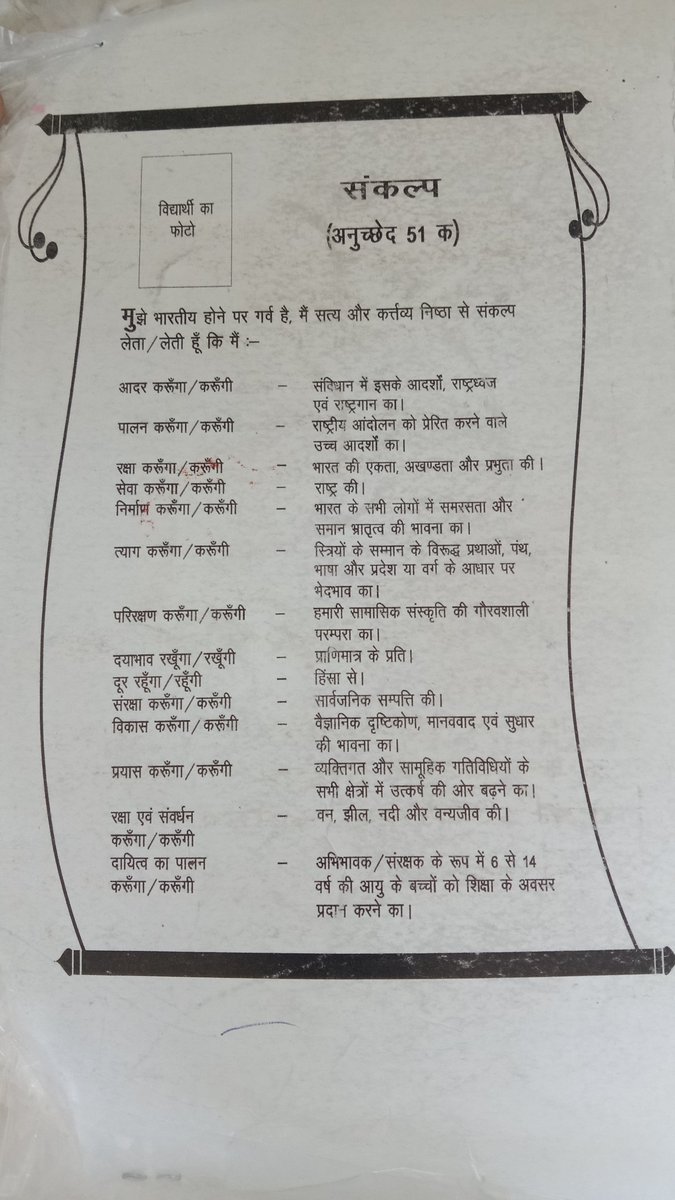 विद्यार्थी का
फोटो
संकल्प
(अनुच्छेद 51 क)
मुझे भारतीय होने पर गर्व है, मैं सत्य और कर्त्तव्य निष्ठा से संकल्प
लेता/लेती हूँ कि मैं :–
आदर करूँगा/करूँगी – संविधान में इसके आदर्शों, राष्ट्रध्वज
एवं राष्ट्रगान का।
पालन करूँगा/करूँगी – राष्ट्रीय आंदोलन को प्रेरित करने वाले
उच्च आदर्शों का।
रक्षा करूँगा/करूँगी – भारत की एकता, अखण्डता और प्रभुता की।
सेवा करूँगा/करूँगी – राष्ट्र की।
निर्माण करूँगा/करूँगी – भारत के सभी लोगों में समरसता और
समान भ्रातृत्व की भावना का।
त्याग करूँगा/करूँगी – स्त्रियों के सम्मान के विरूद्ध प्रथाओं, पंथ,
भाषा और प्रदेश या वर्ग के आधार पर
भेदभाव का।
परिरक्षण करूँगा/करूँगी – हमारी सामासिक संस्कृति की गौरवशाली
परम्परा का।
दयाभाव रखूँगा/रखूँगी – प्राणिमात्र के प्रति।
दूर रहूँगा/रहूँगी – हिंसा से।
संरक्षा करूँगा/करूँगी – सार्वजनिक सम्पत्ति की।
विकास करूँगा/करूँगी – वैज्ञानिक दृष्टिकोण, मानववाद एवं सुधार
की भावना का।
प्रयास करूँगा/करूँगी – व्यक्तिगत और सामूहिक गतिविधियों के
सभी क्षेत्रों में उत्कर्ष की ओर बढ़ने का।
रक्षा एवं संवर्धन – वन, झील, नदी और वन्यजीव की।
करूँगा/करूँगी
दायित्व का पालन – अभिभावक/संरक्षक के रूप में 6 से 14
करूँगा/करूँगी वर्ष की आयु के बच्चों को शिक्षा के अवसर
प्रदान करने का।